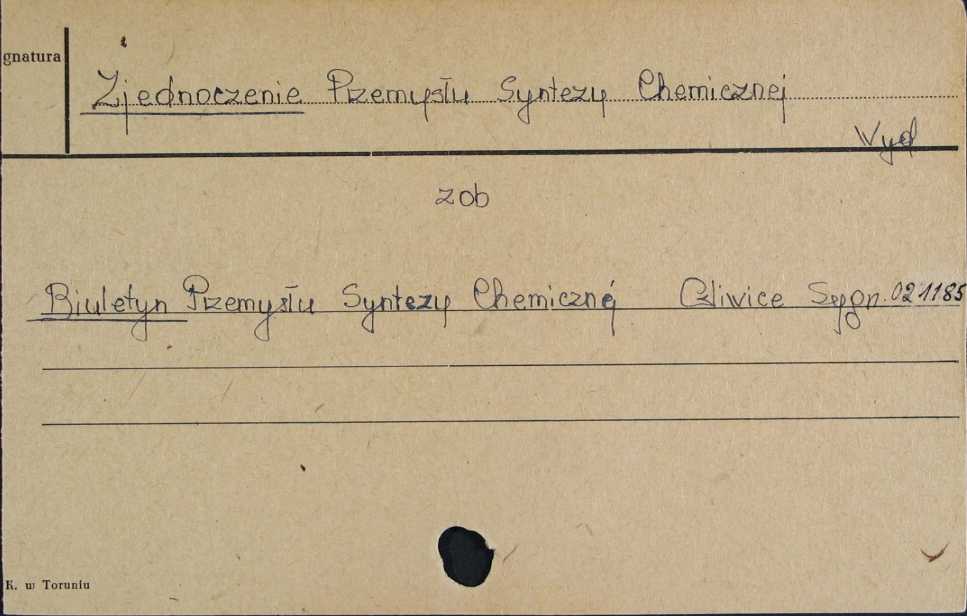 gnatura
Zjednoczenie Przemysłu Syntezy Chemicznej
Wyd
zob
Biuletyn Przemysłu Syntezy Chemicznej Gliwice Sygn. 021185
K. w Toruniu